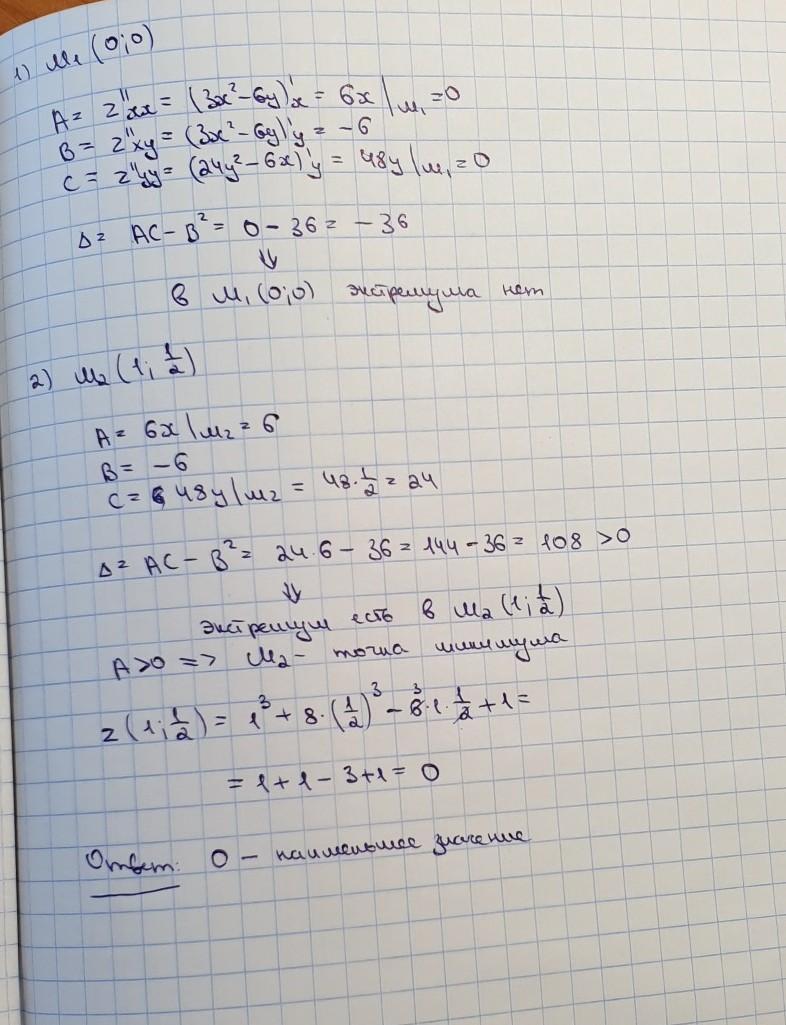 1) M₁ (0;0)
A = z''xx = (3x²-6y)'x = 6x |M₁ = 0
B = z''xy = (3x²-6y)'y = -6
C = z''yy = (24y²-6x)'y = 48y |M₁ = 0
Δ = AC - B² = 0 - 36 = -36
⇓
в M₁ (0;0) экстремума нет
2) M₂ (1; 1/2)
A = 6x |M₂ = 6
B = -6
C = 48y |M₂ = 48·1/2 = 24
Δ = AC - B² = 24·6 - 36 = 144 - 36 = 108 >0
⇓
экстремум есть в M₂ (1; 1/2)
A>0 => M₂ - точка минимума
z (1; 1/2) = 1³ + 8·(1/2)³ - 6·1·1/2 + 1 =
= 1 + 1 - 3 + 1 = 0
Ответ: 0 - наименьшее значение